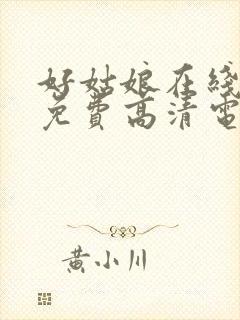 好姑娘在线
免费高清电
黄小川